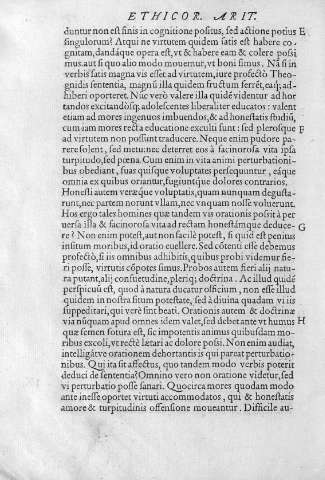 ETHICOR. ARIT.
duntur non est finis in cognitione positus, sed actione potius E
singulorum? Atqui ne virtutem quidem satis est habere co-
gnitam, dandáque opera est, vt & habere eam & colere possi
mus. aut si quo alio modo mouemur, vt boni simus. Nã si in
verbis satis magna vis esset ad virtutem, iure profectò Theo-
gnidis sententia, magnũ illa quidem fructum ferret, eaq́; ad-
hiberi oporteret. Nũc verò valere illa quidẽ videntur ad hor
tandos excitandósq; adolescentes liberaliter educatos: valent
etiam ad mores ingenuos imbuendos, & ad honestatis studiũ,
cum iam mores recta educatione exculti sunt: sed plerosque F
ad virtutem non possunt traducere. Neque enim pudore pa-
rere solent, sed metu: nec deterret eos à facinorosa vita ipsa
turpitudo, sed pœna. Cum enim in vita animi perturbationi-
bus obediant, suas quisque voluptates persequuntur, eáque
omnia ex quibus oriantur, fugiúntque dolores contrarios.
Honesti autem veræque voluptatis, quam nunquam degusta-
runt, nec partem norunt vllam, nec vnquam nosse voluerunt.
Hos ergo tales homines quæ tandem vis orationis possit à per
uersa illa & facinorosa vita ad rectam honestámque deduce- G
re? Non enim potest, aut non facilè potest, si quid est penitus
insitum moribus, id oratio euellere. Sed cõtenti esse debemus
profectò, si iis omnibus adhibitis, quibus probi videmur fie-
ri posse, virtutis cõpotes simus. Probos autem fieri alij natu-
ra putant, alij consuetudine, pleriq; doctrina. Ac illud quidẽ
perspicuũ est, quod à natura ducatur officium, non esse illud
quidem in nostra situm potestate, sed à diuina quadam vi iis
suppeditari, qui verè sint beati. Orationis autem & doctrinæ
via nũsquam apud omnes idem valet, sed debet ante vt humus H
quæ semen fotura est, sic impotentis animus quibusdam mo-
ribus excoli, vt rectè lætari ac dolore possi. Non enim audiat,
intelligátve orationem dehortantis is qui pareat perturbatio-
nibus. Qui ita sit affectus, quo tandem modo verbis poterit
deduci de sententia? Omnino vero non oratione videtur, sed
vi perturbatio posse sanari. Quocirca mores quodam modo
ante inesse oportet virtuti accommodatos, qui & honestatis
amore & turpitudinis offensione moueantur. Difficile au-